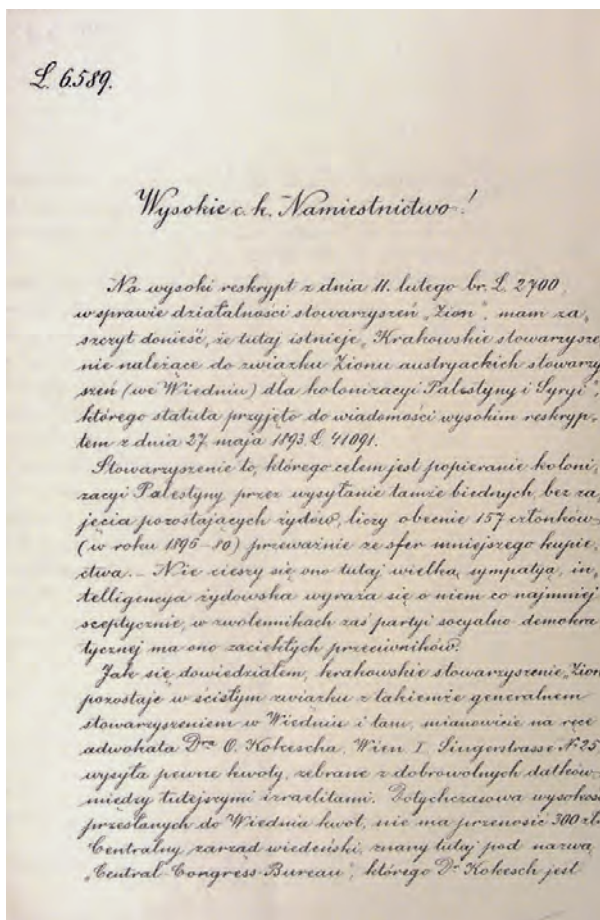 L. 6.589.
Wysokie c. k. Namiestnictwo!
Na wysoki reskrypt z dnia 11. lutego br. L. 2700,
w sprawie działalności stowarzyszeń „Zion", mam za-
szczyt donieść, że tutaj istnieje „Krakowskie stowarzysze
nie należące do związku Zionu austryackich stowarzy
szeń (we Wiedniu) dla kolonizacyi Palestyny i Syryi",
którego statuta przyjęto do wiadomości wysokim reskryp-
tem z dnia 27. maja 1893. L. 41091.
Stowarzyszenie to, którego celem jest popieranie koloni-
zacyi Palestyny przez wysyłanie tamże biednych, bez za-
jęcia pozostających żydów, liczy obecnie 157 członków
(w roku 1895-80) przeważnie ze sfer mniejszego kupie-
ctwa. - Nie cieszy się ono tutaj wielką sympatyą, in-
telligencya żydowska wyraża się o niem co najmniej
sceptycznie, w zwolennikach zaś partyi socyalno demokra
tycznej ma ono zaciekłych przeciwników.
Jak się dowiedziałem, krakowskie stowarzyszenie „Zion
pozostaje w ścisłym związku z takiemże generalnem
stowarzyszeniem w Wiedniu i tam, mianowicie na ręce
adwokata Dra O. Kokescha, Wien I. Singerstrasse № 25
wysyła pewne kwoty, zebrane z dobrowolnych datków
między tutejszymi izraelitami. Dotychczasowa wysokość
przesłanych do Wiednia kwot, nie ma przenosić 300 złr
Centralny zarząd wiedeński, znany tutaj pod nazwą
„Central-Congress-Bureau", którego Dr Kokesch jest